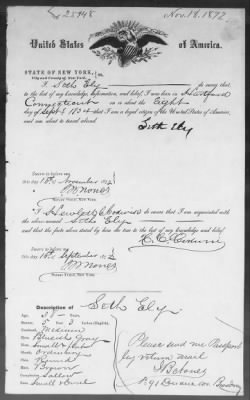 25948
Nov. 18. 1872
United States of America.
STATE OF NEW YORK,
City and County of New York,
I Seth Ely do swear that
to the best of my knowledge, information, and belief, I was born in Hartford
Connecticut on or about the Eight
day of Sept 1834 that I am a legal citizen of the United States of America,
and am about to travel abroad.
Seth Ely
Sworn to before me
this 18th November 1872
Notary Public, New York.
I do swear that I am acquainted with
the above named Seth Ely
and that the facts above stated by him are true to the best of my knowledge and belief
Sworn to before me
this 18th
Notary Public, New York.
Description of Seth Ely
Age, 38 Years
Stature, 5 Feet 3 Inches (English),
Medium
Gray
Small
Ordinary
Round
Brown
Sallow
Small & Oval
Please send me Passport
by return mail
Broadway